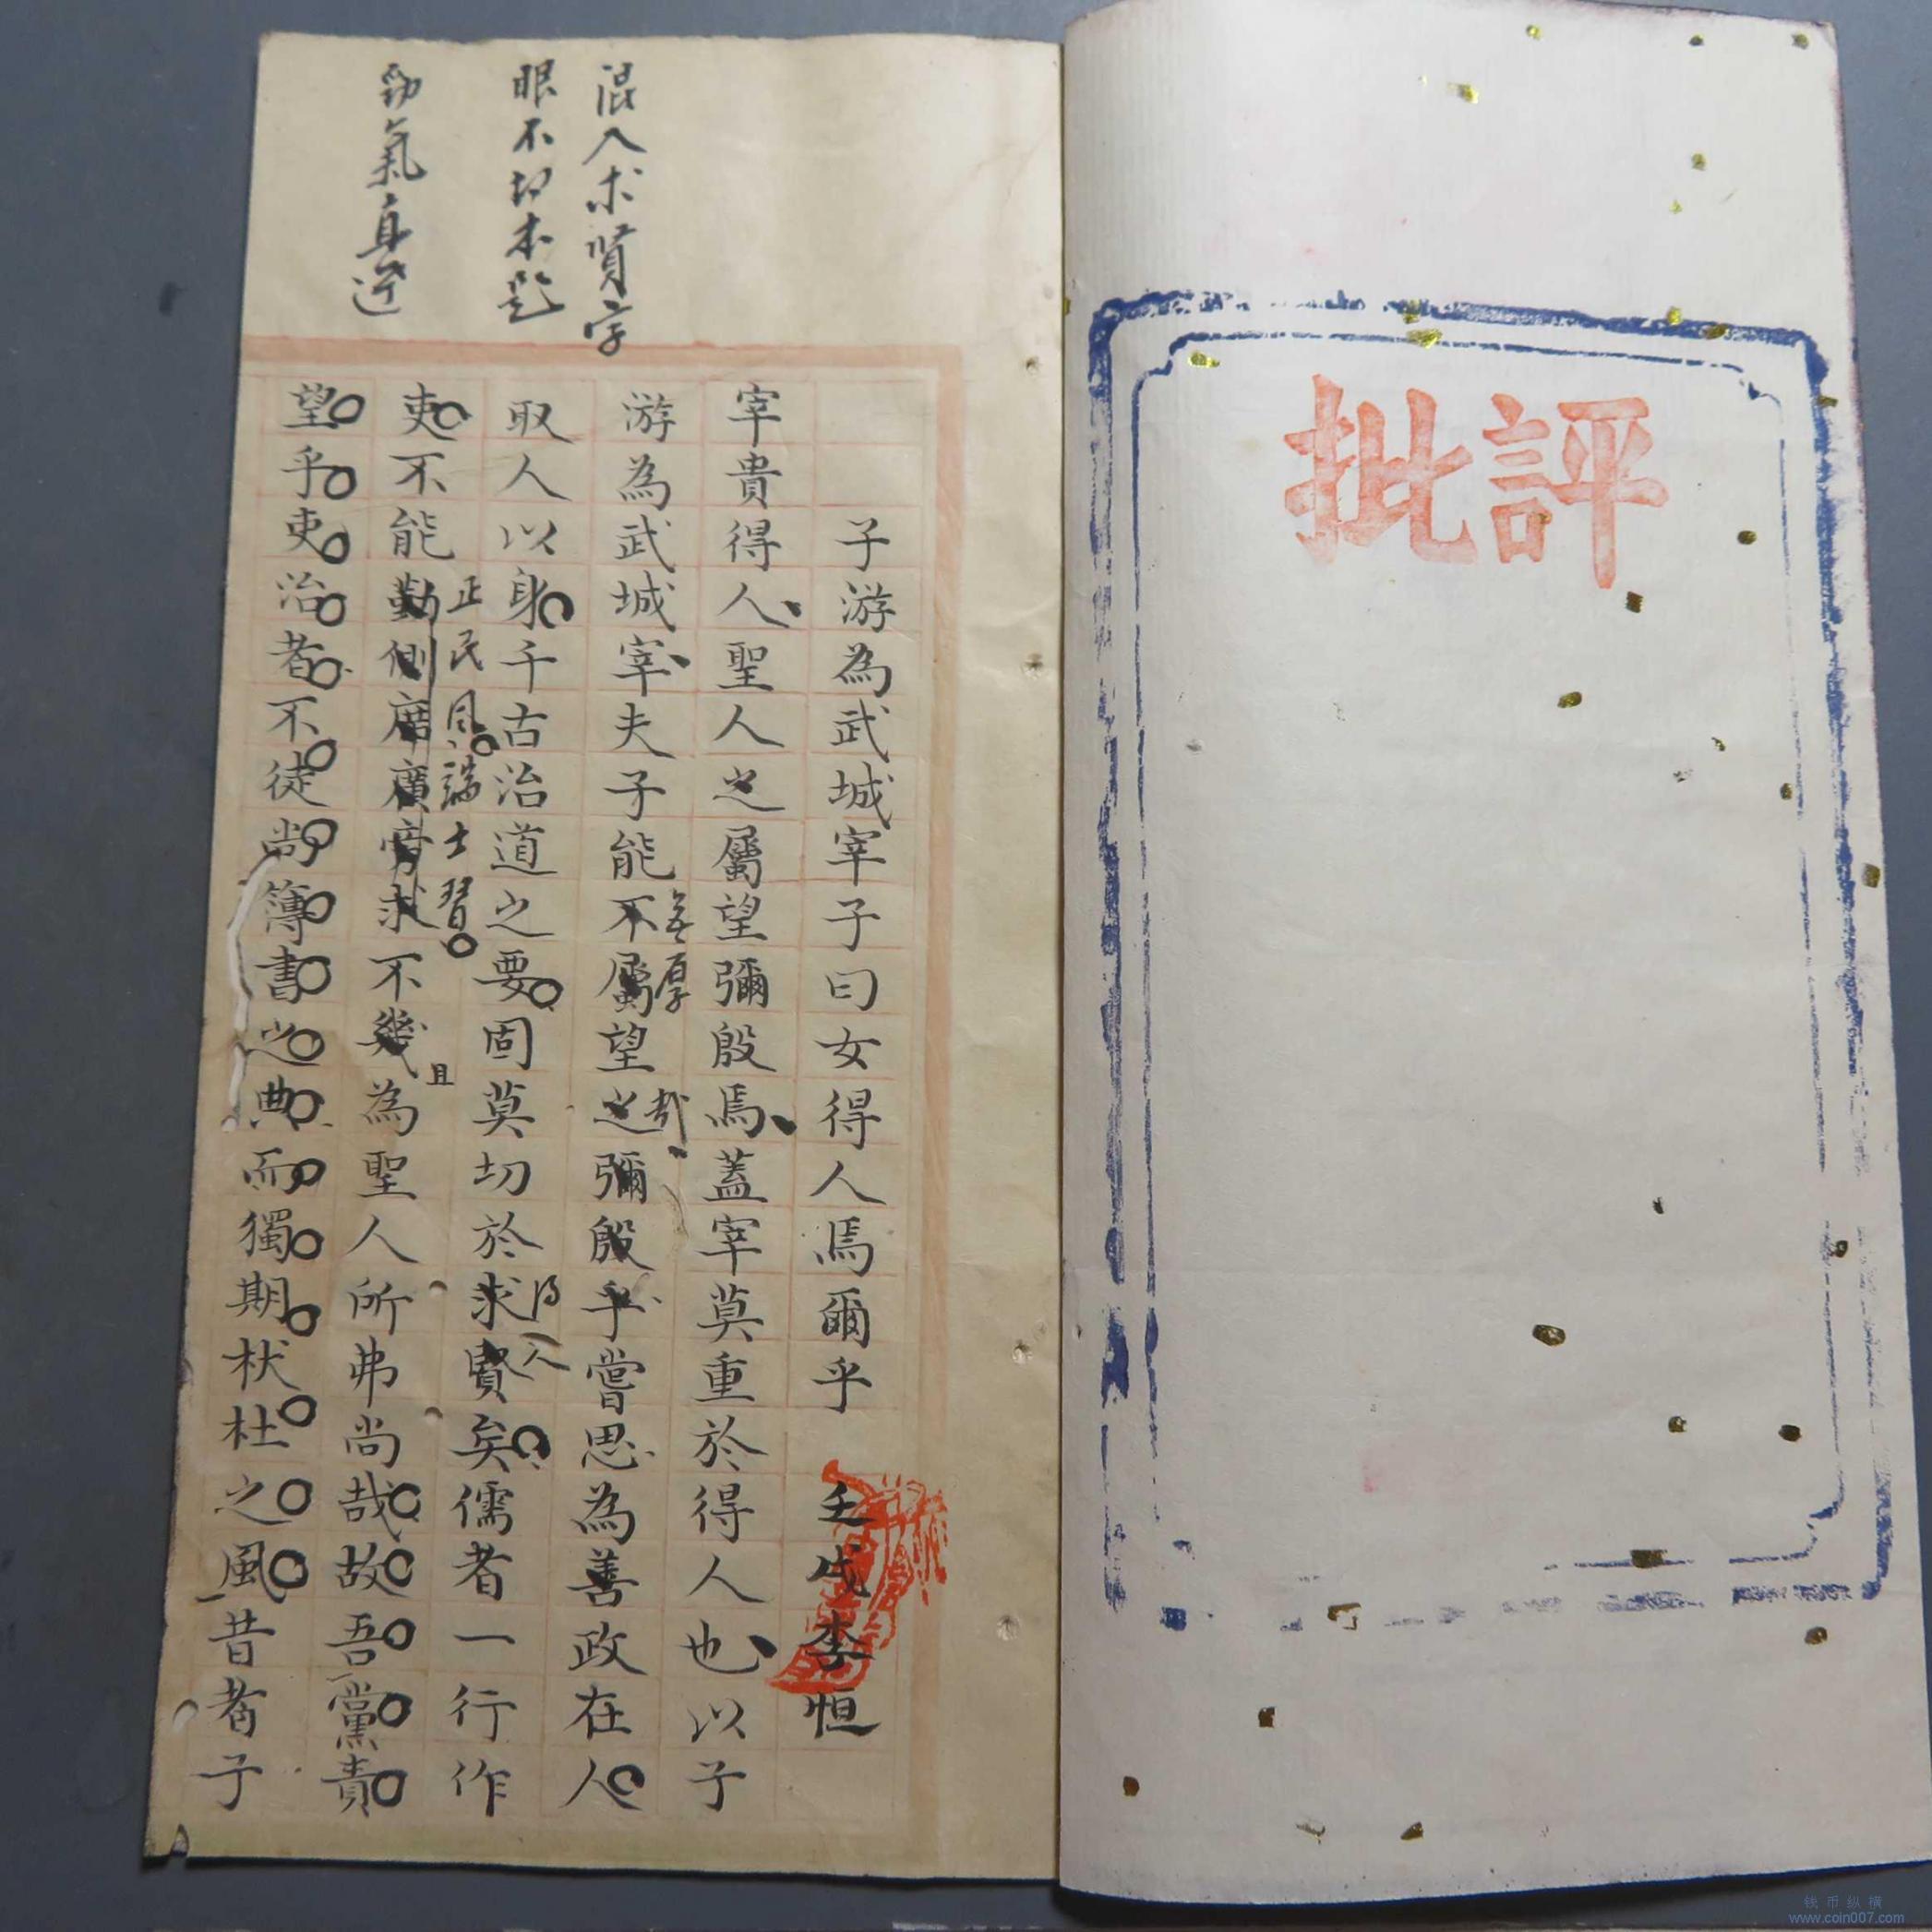 批評
混入求賢字
眼不切本題
勁氣直達
子游為武城宰子曰女得人焉爾乎 壬戌李恒
宰貴得人聖人之屬望彌殷焉蓋宰莫重於得人也以子
游為武城宰夫子能不屬望之彌殷乎嘗思為善政在人
無厚
哉
取人以身千古治道之要固莫切於求賢矣儒者一行作
得人
吏不能勤側席廣旁求不幾為聖人所弗尚哉故吾黨責
正民風端士習
且
望乎吏治者不徒尚簿書之典而獨期杕杜之風昔者子
钱币纵横
www.coin007.com